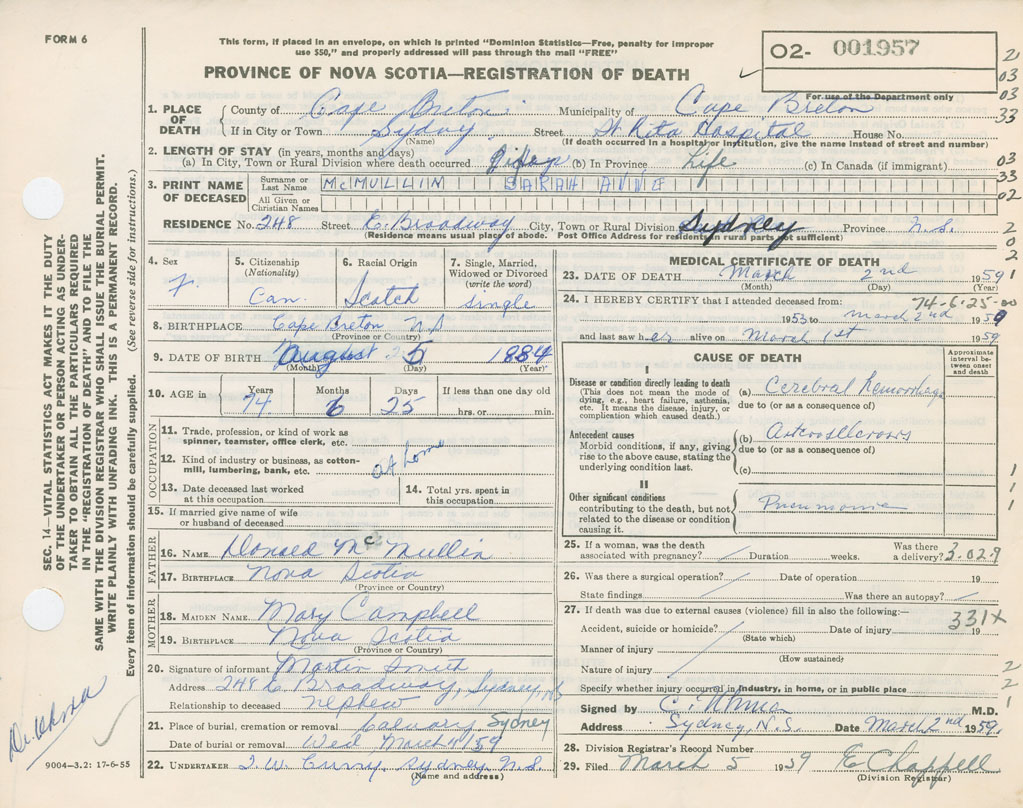 FORM 6
This form, if placed in an envelope, on which is printed "Dominion Statistics—Free, penalty for improper
use $50," and properly addressed will pass through the mail "FREE"
PROVINCE OF NOVA SCOTIA—REGISTRATION OF DEATH
02- 001957
For use of the Department only
20
03
03
33
03
33
02
2
0
2
SEC. 14—VITAL STATISTICS ACT MAKES IT THE DUTY
OF THE UNDERTAKER OR PERSON ACTING AS UNDER-
TAKER TO OBTAIN ALL THE PARTICULARS REQUIRED
IN THE "REGISTRATION OF DEATH" AND TO FILE THE
SAME WITH THE DIVISION REGISTRAR WHO SHALL ISSUE THE BURIAL PERMIT.
WRITE PLAINLY WITH UNFADING INK. THIS IS A PERMANENT RECORD.
Every item of information should be carefully supplied. (See reverse side for instructions.)
1. PLACE OF DEATH
County of Cape Breton Municipality of Cape Breton
If in City or Town Sydney Street St Rita Hospital House No.
(Name) (If death occurred in a hospital or institution, give the name instead of street and number)
2. LENGTH OF STAY (in years, months and days)
(a) In City, Town or Rural Division where death occurred (b) In Province Life (c) In Canada (if immigrant)
3. PRINT NAME OF DECEASED
Surname or Last Name McMULLIN SARAH ANNE
All Given or Christian Names
RESIDENCE No. 248 Street E. Broadway City, Town or Rural Division Sydney Province N.S.
(Residence means usual place of abode. Post Office Address for residents in rural parts not sufficient)
4. Sex F.
5. Citizenship (Nationality) Can.
6. Racial Origin Scotch
7. Single, Married, Widowed or Divorced (write the word) single
8. BIRTHPLACE Cape Breton N.S
(Province or Country)
9. DATE OF BIRTH August 5 1884
(Month) (Day) (Year)
10. AGE in Years 74 Months 6 Days 25 If less than one day old
hrs. or min.
OCCUPATION
11. Trade, profession, or kind of work as
spinner, teamster, office clerk, etc.
12. Kind of industry or business, as cotton-
mill, lumbering, bank, etc.
at home
13. Date deceased last worked
at this occupation
14. Total yrs. spent in
this occupation
15. If married give name of wife
or husband of deceased
FATHER
16. NAME Donald McMullin
17. BIRTHPLACE Nova Scotia
(Province or Country)
MOTHER
18. MAIDEN NAME Mary Campbell
19. BIRTHPLACE Nova Scotia
(Province or Country)
20. Signature of informant Martin Smith
Address 248 E. Broadway, Sydney, NS
Relationship to deceased nephew
21. Place of burial, cremation or removal Calvary Sydney
Date of burial or removal Wed March 4/59
22. UNDERTAKER T. W. Curry, Sydney N.S.
(Name and address)
9004-3.2: 17-6-55
MEDICAL CERTIFICATE OF DEATH
23. DATE OF DEATH March 2nd 1959
(Month) (Day) (Year)
24. I HEREBY CERTIFY that I attended deceased from:
74-6-25-00
1953 to March 2nd 1959
and last saw her alive on March 1st 1959
CAUSE OF DEATH
Approximate interval between onset and death
I
Disease or condition directly leading to death
(This does not mean the mode of
dying, e.g., heart failure, asthenia,
etc. It means the disease, injury, or
complication which caused death.)
(a) Cerebral Hemorrhage
due to (or as a consequence of)
Antecedent causes
Morbid conditions, if any, giving
rise to the above cause, stating the
underlying condition last.
(b)
due to (or as a consequence of)
(c)
II
Other significant conditions
contributing to the death, but not
related to the disease or condition
causing it.
Pneumonia
25. If a woman, was the death
associated with pregnancy? Duration weeks. Was there
a delivery? 3.02.9
26. Was there a surgical operation? Date of operation 19
State findings Was there an autopsy?
27. If death was due to external causes (violence) fill in also the following:— 331X
Accident, suicide or homicide? Date of injury 19
(State which)
Manner of injury
(How sustained)
Nature of injury
Specify whether injury occurred in industry, in home, or in public place
Signed by M.D.
Address Sydney, N.S. Date March 2nd 1959.
28. Division Registrar's Record Number
29. Filed March 5 1959 E Chappell
(Division Registrar)